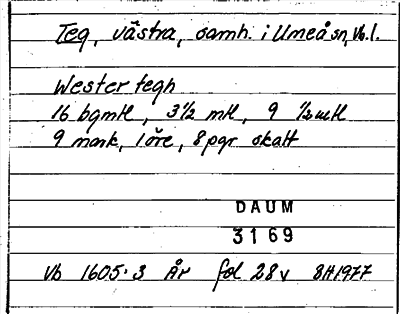 Teg, västra, samh. i Umeå sn, Vb. l.
Wester tegh
16 bgmtl, 3 1/2 mtl, 9 1/2 mtl
9 mark, 1 öre, 8 pgr skatt
DAUM
3169
Vb 1605:3 År fol 28v BH 1977